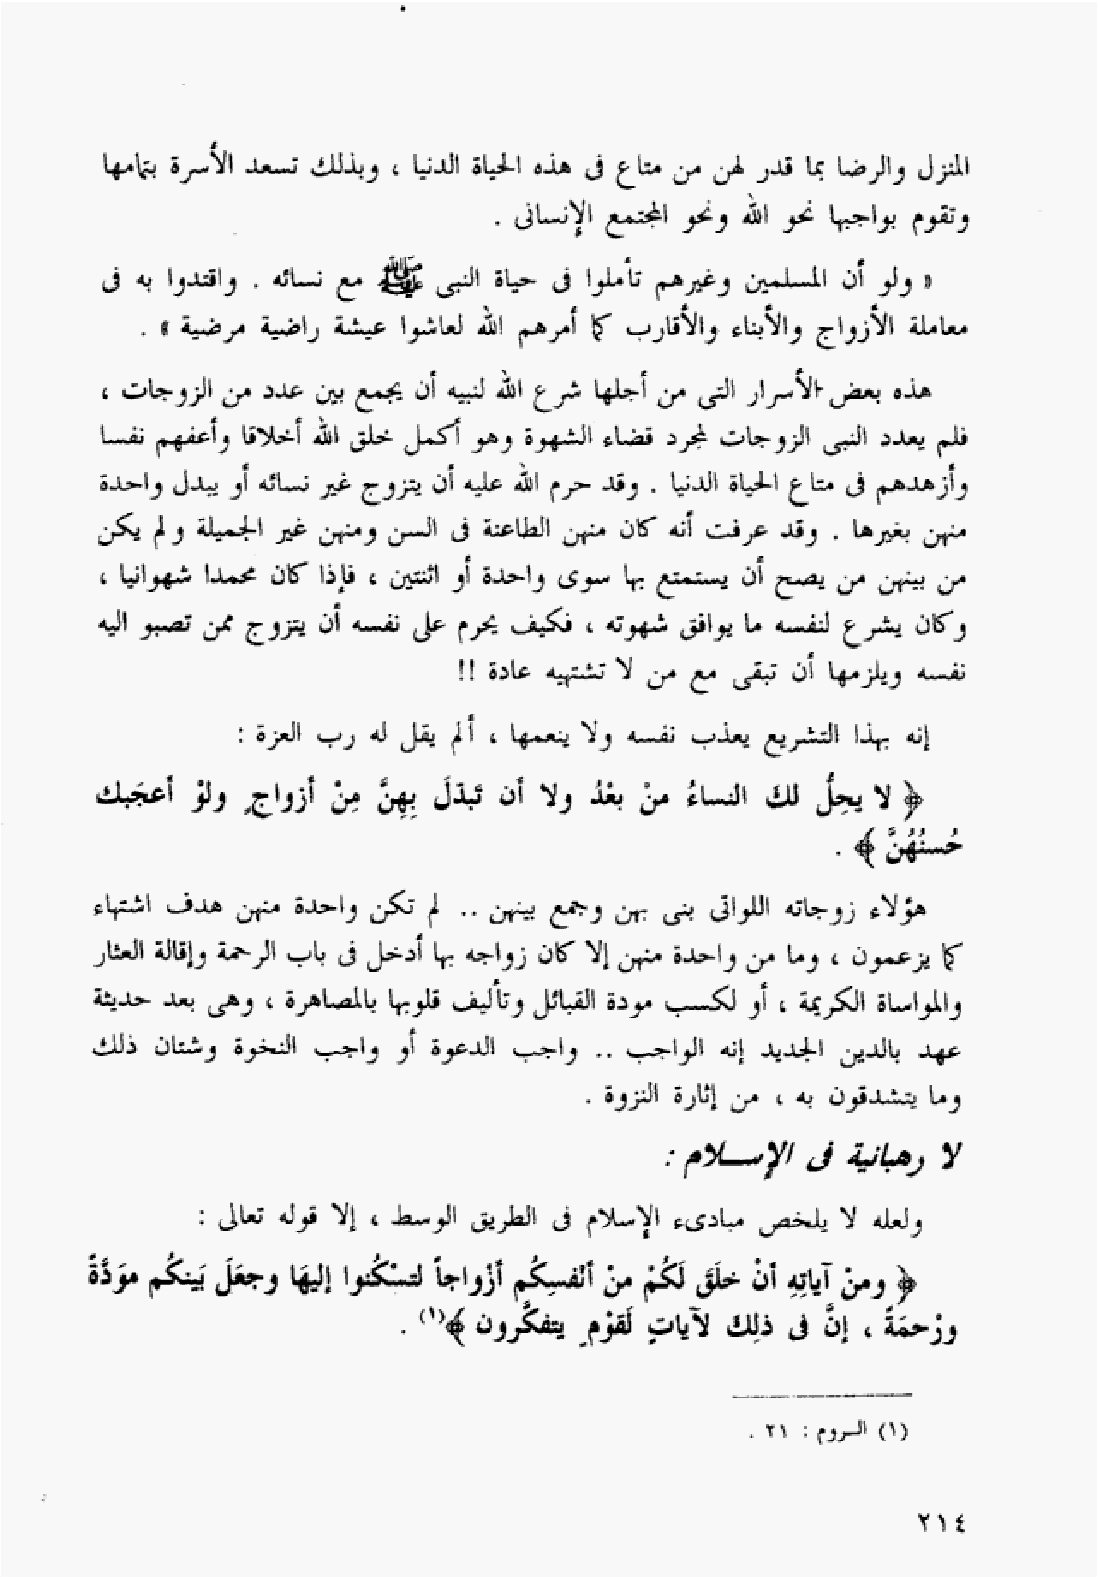 المنزل والرضا بما قدر لهن من متاع فى هذه الحياة الدنيا ، وبذلك تسعد الأسرة بتمامها
وتقوم بواجبها نحو الله ونحو المجتمع الإنسانى .
« ولو أن المسلمين وغيرهم تأملوا فى حياة النبى ﷺ مع نسائه . واقتدوا به فى
معاملة الأزواج والأبناء والأقارب كما أمرهم الله لعاشوا عيشة راضية مرضية » .
هذه بعض الأسرار التى من أجلها شرع الله لنبيه أن يجمع بين عدد من الزوجات ،
فلم يعدد النبى الزوجات لمجرد قضاء الشهوة وهو أكمل خلق الله أخلاقا وأعفهم نفسا
وأزهدهم فى متاع الحياة الدنيا . وقد حرم الله عليه أن يتزوج غير نسائه أو يبدل واحدة
منهن بغيرها . وقد عرفت أنه كان منهن الطاعنة فى السن ومنهن غير الجميلة ولم يكن
من بينهن من يصح أن يستمتع بها سوى واحدة أو اثنتين ، فإذا كان محمدا شهوانيا ،
وكان يشرع لنفسه ما يوافق شهوته ، فكيف يحرم على نفسه أن يتزوج ممن تصبو اليه
نفسه ويلزمها أن تبقى مع من لا تشتهيه عادة !!
إنه بهذا التشريع يعذب نفسه ولا ينعمها ، ألم يقل له رب العزة :
﴿ لا يحِلُّ لكَ النساءُ منْ بعْدُ ولا أن تَبدّلَ بِهِنَّ مِنْ أزواجٍ ولوْ أعجَبك
حُسنُهُنَّ ﴾ .
هؤلاء زوجاته اللواتى بنى بهن وجمع بينهن .. لم تكن واحدة منهن هدف اشتهاء
كما يزعمون ، وما من واحدة منهن إلا كان زواجه بها أدخل فى باب الرحمة وإقالة العثار
والمواساة الكريمة ، أو لكسب مودة القبائل وتأليف قلوبها بالمصاهرة ، وهى بعد حديثة
عهد بالدين الجديد إنه الواجب .. واجب الدعوة أو واجب النخوة وشتان ذلك
وما يتشدقون به ، من إثارة النزوة .
لا رهبانية فى الإسـلام :
ولعله لا يلخص مبادىء الإسلام فى الطريق الوسط ، إلا قوله تعالى :
﴿ ومنْ آياتِهِ أنْ خلَقَ لَكُمْ منْ أنْفسِكُم أزْواجاً لتسْكُنوا إليهَا وجعَلَ بَينكُم موَدَّةً
ورْحمَةً ، إنَّ فى ذلِكَ لآياتٍ لَقوْمٍ يتفكَّرون ﴾(١) .
(١) الـروم : ٢١ .
٢١٤